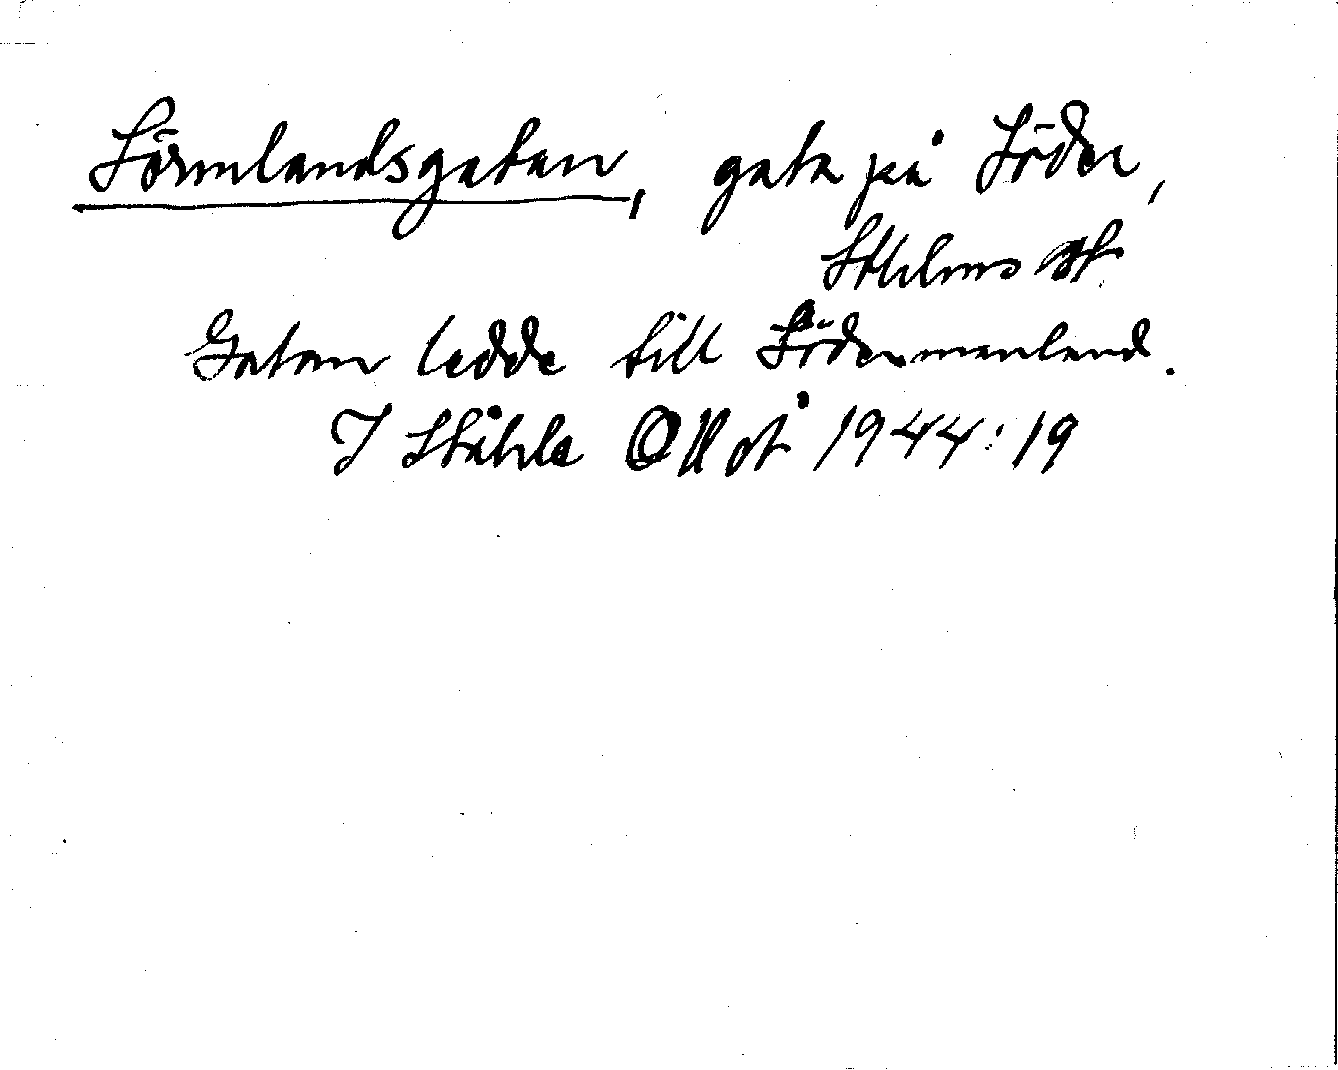 Sörmlandsgatan, gata på Söder,
Sthlms st.
Gatan ledde till Södermanland.
I Ståhle ONoÅ 1944:19